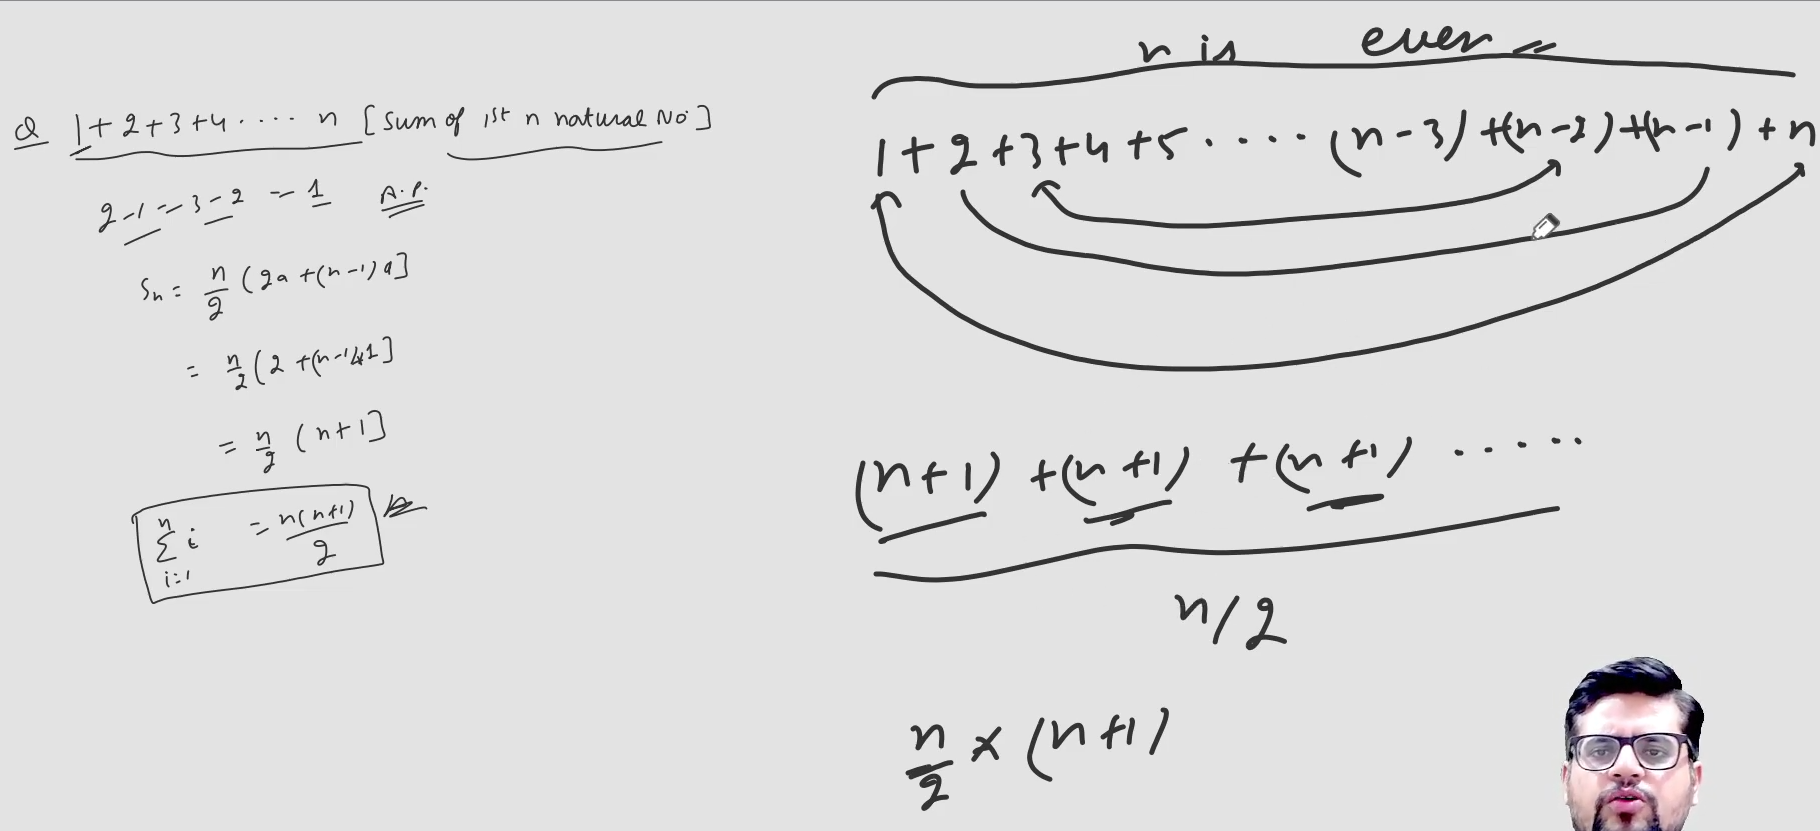 Q 1+2+3+4.... n [Sum of 1st n natural No]
2-1 = 3-2 = 1 A.P.
Sn = n/2 (2a+(n-1)d]
= n/2 (2+(n-1)x1]
= n/2 (n+1]
n∑i=1 i = n(n+1)/2
n is even
1+2+3+4+5....(n-3)+(n-2)+(n-1)+n
(n+1)+(n+1)+(n+1).....
n/2
n/2 × (n+1)